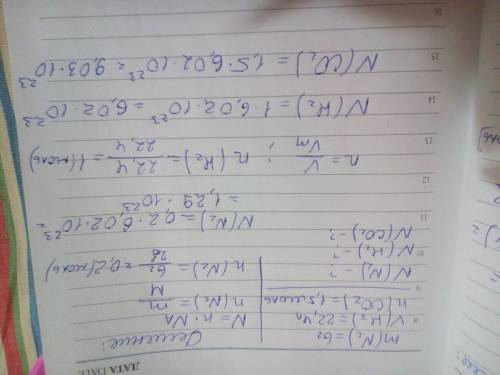 ДАТА DATE
Решение:
m(N₂)=6г
V(H₂)=22,4л
n(CO₂)=1,5моль
N(N₂)-?
N(H₂)-?
N(CO₂)-?
N=n·Nₐ
n(N₂)=m/M
n(N₂)=6г/28=0,2(моль)
N(N₂)=0,2·6,02·10²³=
=1,29·10²³
n=V/Vm; n(H₂)=22,4/22,4=1(моль)
N(H₂)=1·6,02·10²³=6,02·10²³
N(CO₂)=1,5·6,02·10²³=9,03·10²³
8
9
10
11
12
13
14
15
16